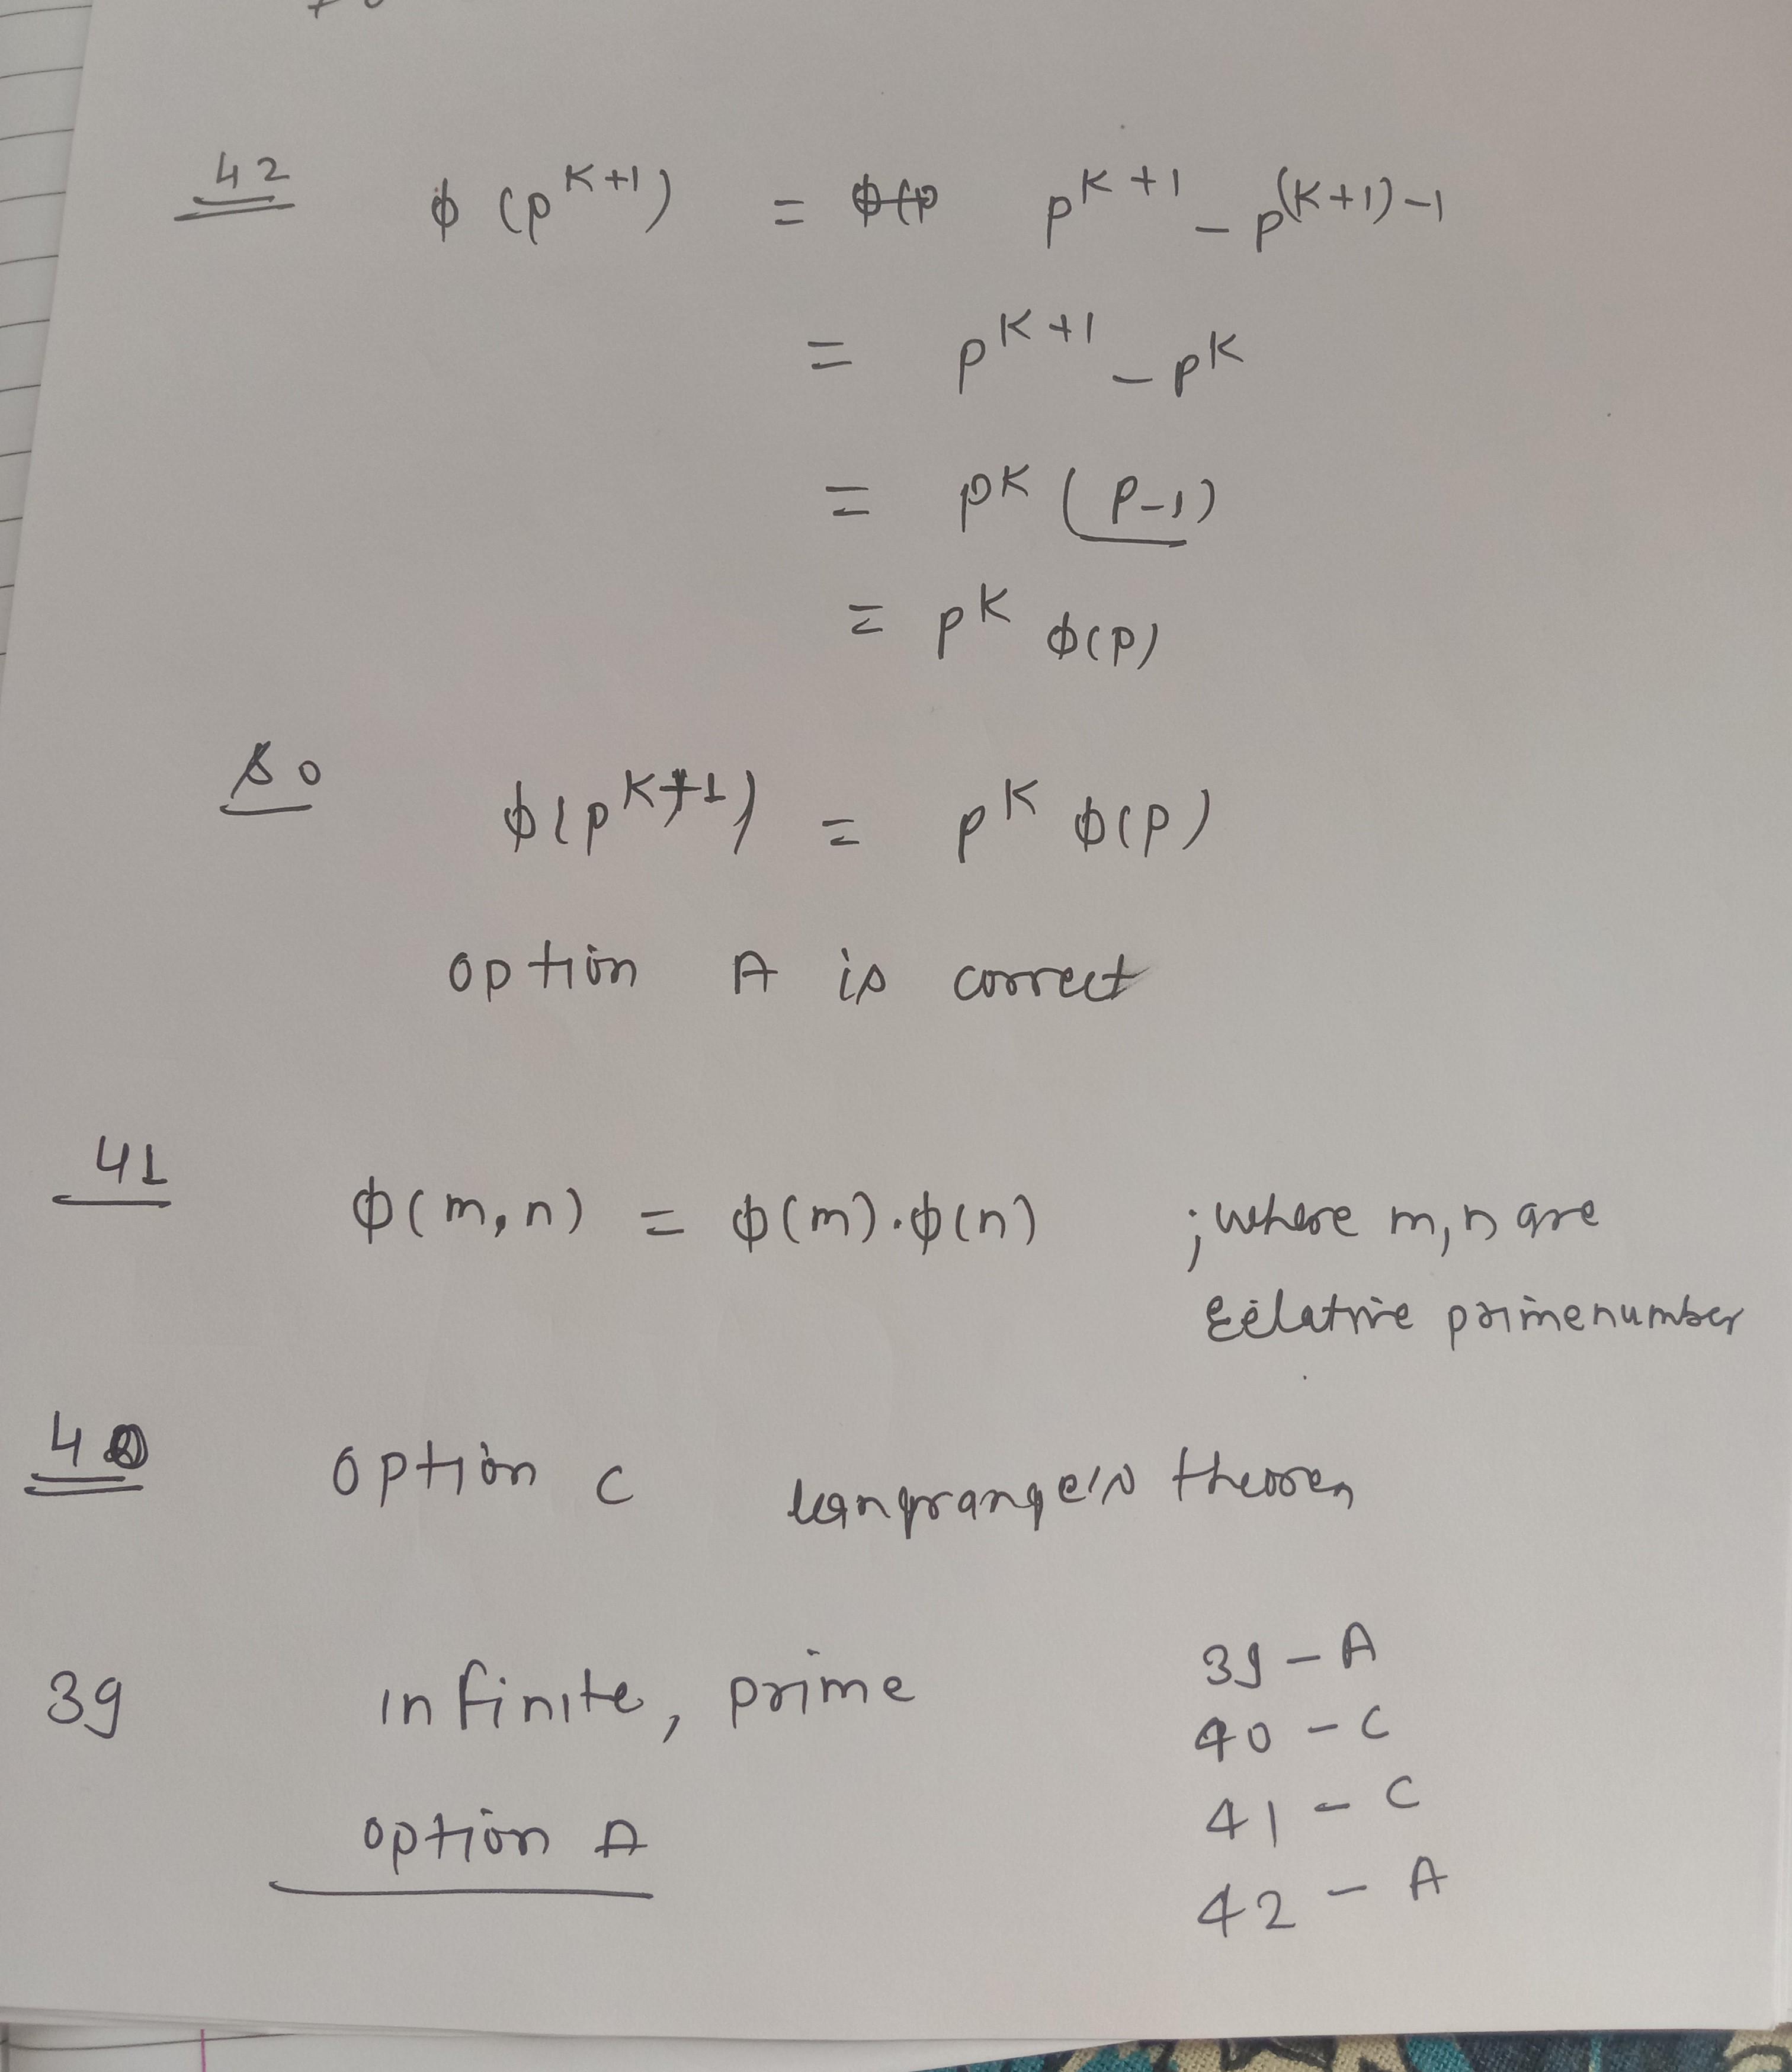 42 ϕ (p^{K+1}) = ϕ(p p^{K+1} - p^{(K+1)-1}
= p^{K+1} - p^K
= p^K (p-1)
= p^K ϕ(p)
So ϕ(p^{K+1}) = p^K ϕ(p)
option A is correct
41 ϕ(m,n) = ϕ(m).ϕ(n) ; where m,n are
relative prime number
40 option C
theorem
39 infinite, prime
option A
39 - A
40 - C
41 - C
42 - A